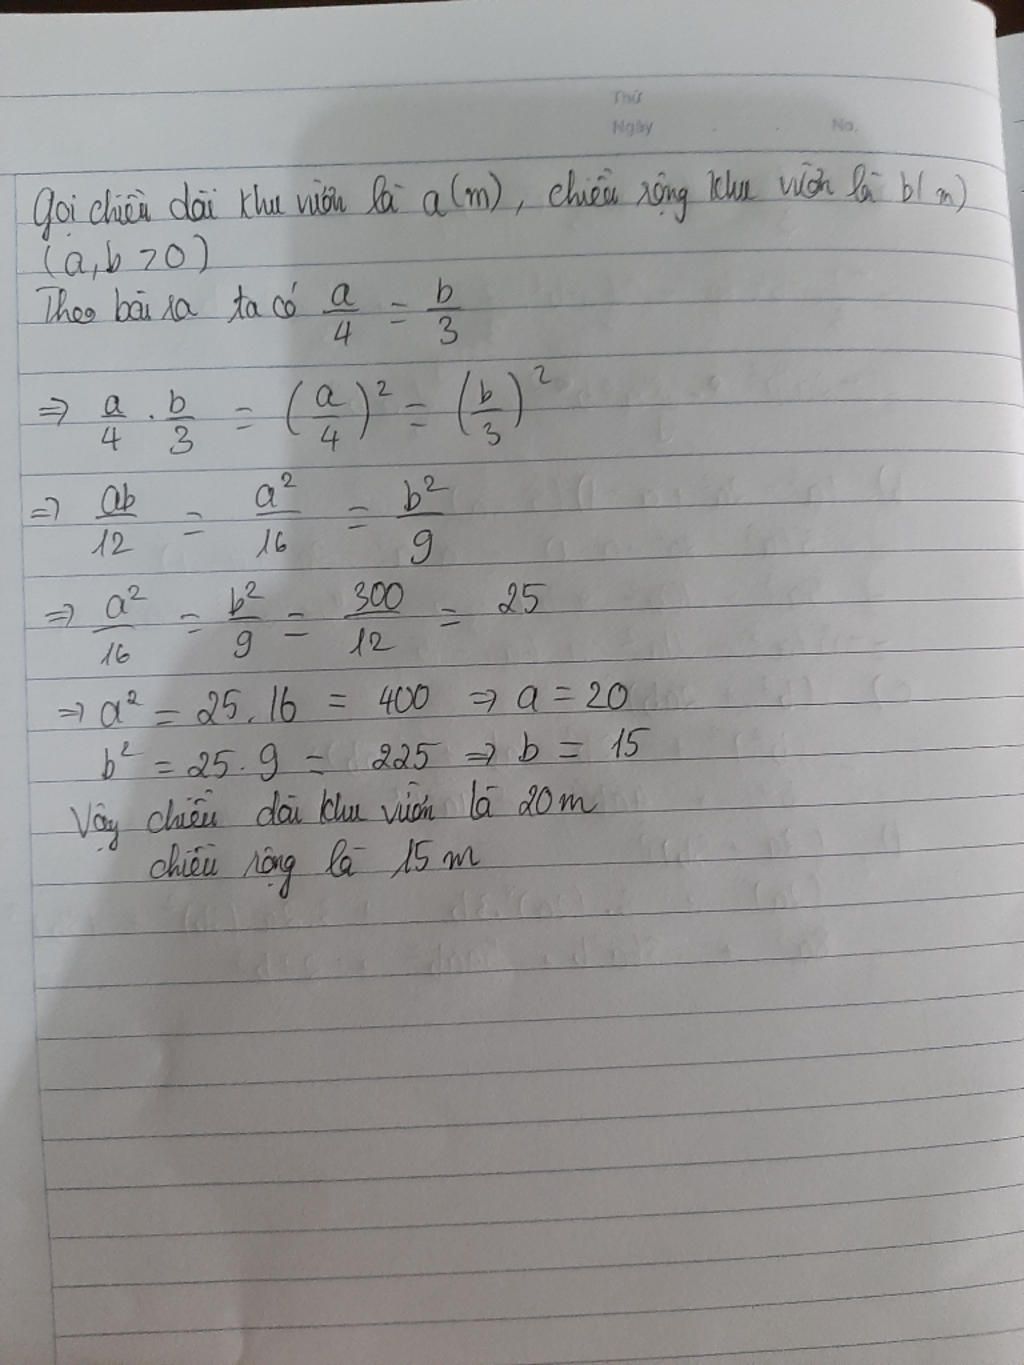 Thứ
Ngày . . No.
Gọi chiều dài khu vườn là a(m), chiều rộng khu vườn là b(m)
(a,b >0)
Theo bài ra ta có a/4 = b/3
=> a/4 . b/3 = (a/4)² = (b/3)²
=> ab/12 = a²/16 = b²/9
=> a²/16 = b²/9 = 300/12 = 25
=> a² = 25.16 = 400 => a = 20
b² = 25.9 = 225 => b = 15
Vậy chiều dài khu vườn là 20m
chiều rộng là 15m